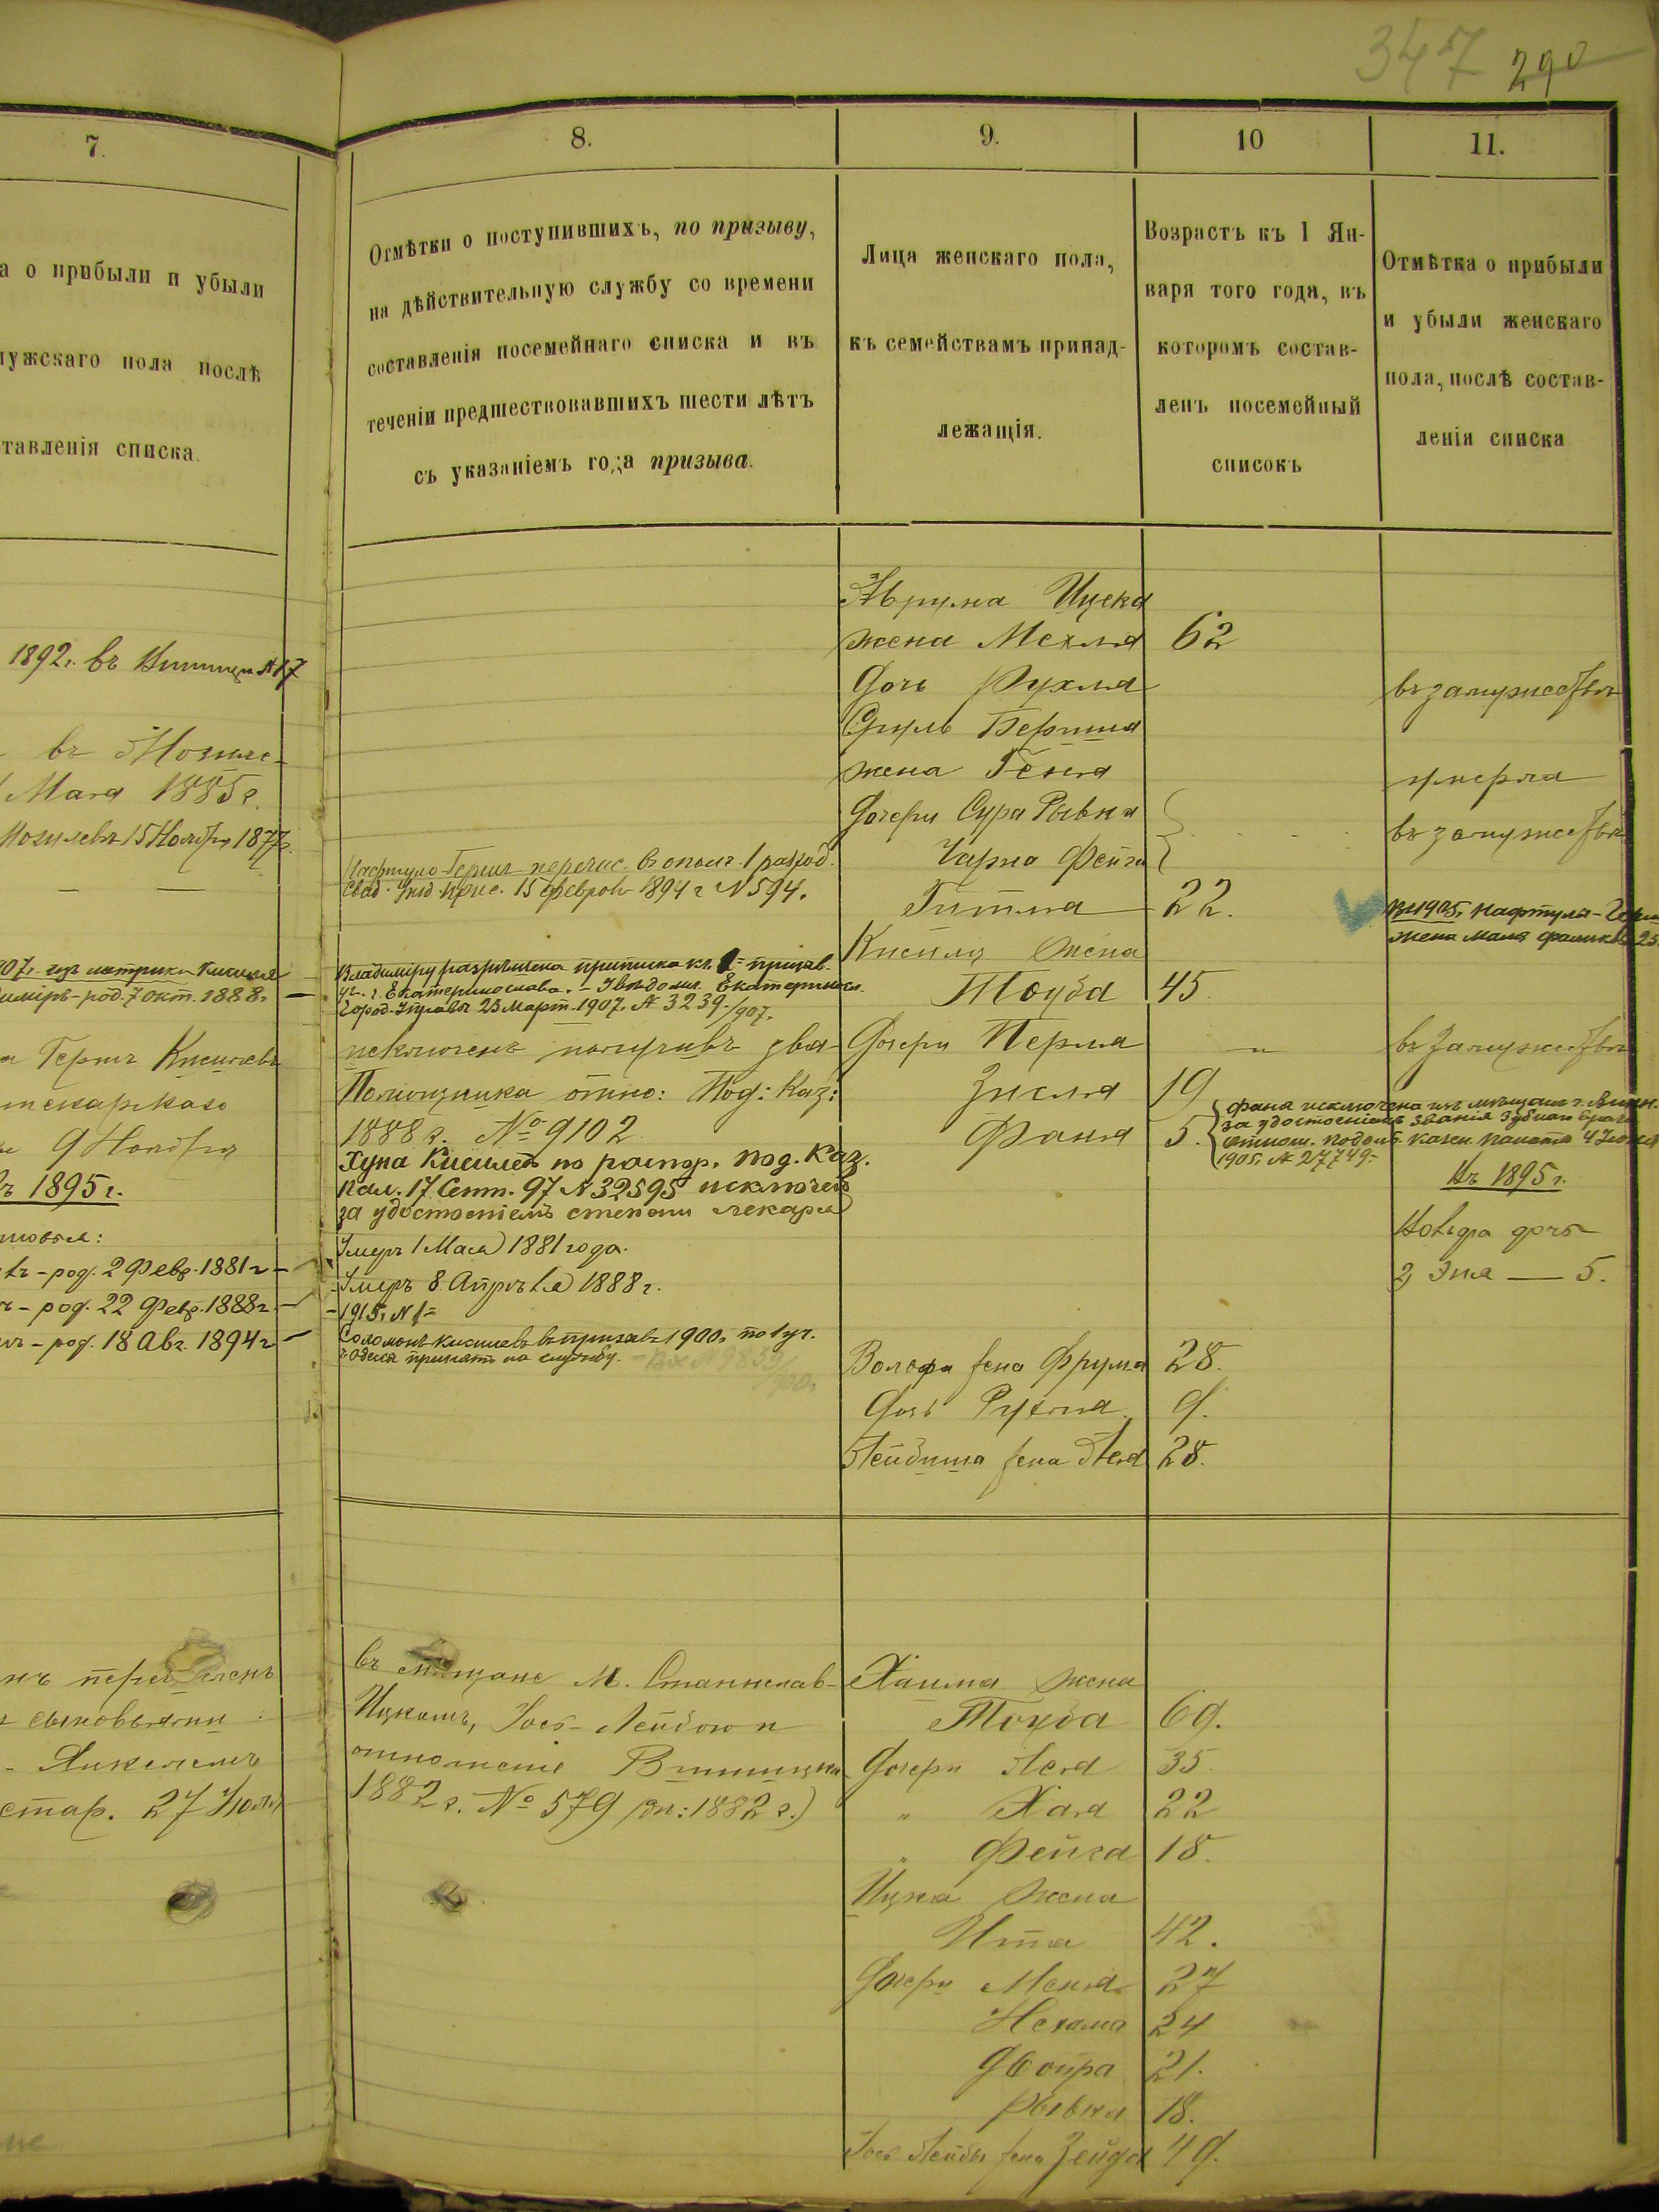 347 290
7.
а о прибыли и убыли
мужскаго пола послѣ
ставленія списка.
1892 г. въ Винницѣ №17
въ Могиле-
Мая 1885 г.
Могилевъ 15 Ноября 1877 г.
907 г. изъ метрики Кисиля
диміръ - род. 7 окт. 1888 г. —
Гершъ Кисилевъ
9 Ноября
ъ 1895 г.
новья:
ъ - род. 2 Февр. 1881 г —
ъ - род. 22 Февр. 1888 г. —
ъ - род. 18 Авг. 1894 г —
нъ перечисленъ
сыновьями
Янкелемъ
стар. 27 Іюля
8.
Отмѣтки о поступившихъ, по призыву,
на дѣйствительную службу со времени
составленія посемейнаго списка и въ
теченіи предшествовавшихъ шести лѣтъ
съ указаніемъ года призыва.
Нафтула-Гершъ перечис. въ ополч. 1 разряд.
15 Февраля 1894 г № 594.
Владиміру разрѣшена приписка къ 1= призыв.
уч. г. Екатеринослава. - Увѣдомл. Екатеринос.
Город. Управы 23 Март. 1907. № 3239/907.
исключенъ получивъ зва-
Помощника отно: Под: Каз:
1888 г. № 9102
Хуна Кисилевъ по распор. Под. Каз.
Пал. 17 Сент. 97 № 32595 исключенъ
за удостоеніемъ степени лекаря
Умеръ 1 Мая 1881 года.
Умеръ 8 Апрѣля 1888 г.
1915 г. № 1=
Соломонъ Кисилевъ въ призывъ 1900 г. по 1 уч.
г. Одесса принятъ на службу.
въ мѣщане М. Станислав-
Ицкомъ, Іось-Лейбою и
отношеніе Винницкой
1882 г. № 579 (вх: 1882 г.)
9.
Лица женскаго пола,
къ семействамъ принад-
лежащія.
Аврума Ицека
жена Мехля
Дочь Рухля
Сруль Бериша
жена Геня
Дочери Сура Рывка
Чарна Фейга
Гитля
Кисиля жена
Тоуба
Дочери Перля
Зисля
Фаня
Волфа жена Фрума
Дочь Рухля
Лейбиша жена Лея
Хаима жена
Тоуба
Дочери Лея
" Хая
" Фейга
Ицка жена
Ита
Дочери Меня
Нехама
Двойра
Рывка
Іось Лейбы жена Зейда
10
Возрастъ къ 1 Ян-
варя того года, въ
которомъ состав-
ленъ посемейный
списокъ
62
22.
45
"
19
5.
28.
9.
28.
69.
35.
22
18.
42.
27
24
21.
18.
49.
11.
Отмѣтка о прибыли
и убыли женскаго
пола, послѣ состав-
ленія списка
въ замужествѣ
умерла
въ замужествѣ
Въ 1905 г. Нафтула-Герш
жена Маля 25.
въ замужествѣ
Фаня исключена изъ мѣщанъ г. Винн.
за удостоеніемъ званія зубного врача
отнош. Подол. Казен. Палаты 4 Іюня
1905 г. № 27749.-
Въ 1895 г.
Вольфа дочь
2, Эня — 5.